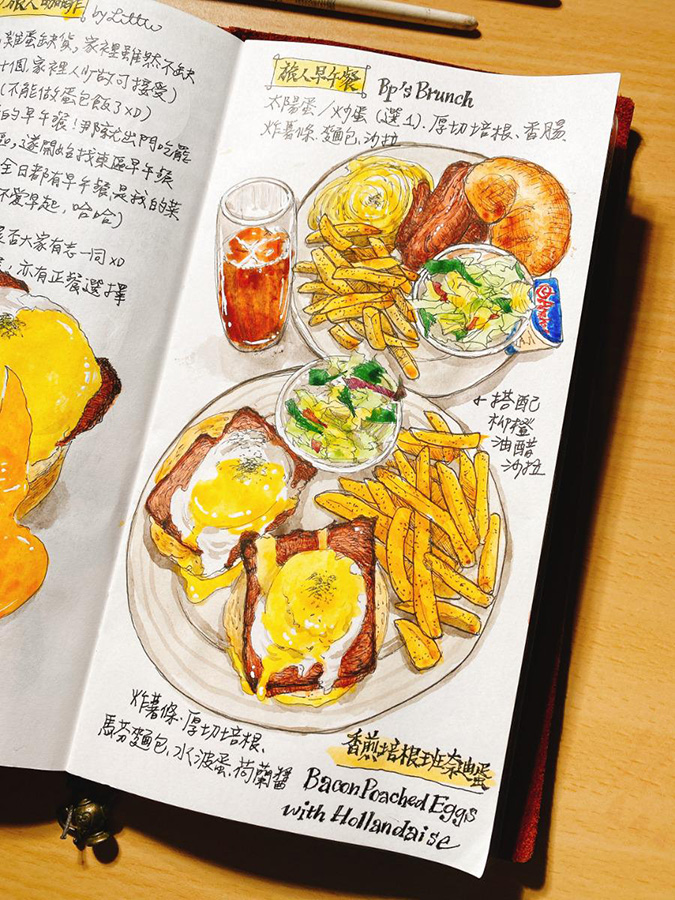 旅人咖啡 by Littw
雞蛋缺貨,家裡雖然不缺
個,家裡人少尚可接受)
(不能做蛋包飯了XD)
的早午餐!那就出門吃罷
遂開始找東區早午餐
全日都有早午餐,是我的菜
不愛早起,哈哈)
是否大家有志一同XD
亦有正餐選擇
旅人早午餐 Bp's Brunch
太陽蛋/炒蛋(選1)、厚切培根、香腸
炸薯條、麵包、沙拉
搭配
柳橙
油醋
沙拉
炸薯條、厚切培根、
馬芬麵包、水波蛋、荷蘭醬
香煎培根班奈迪蛋
Bacon Poached Eggs
with Hollandaise